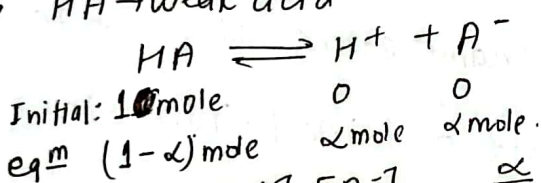 HA → weak acid
HA ⇌ H⁺ + A⁻
Initial: 1 mole 0 0
eqᵐ (1-α) mole α mole α mole.
α